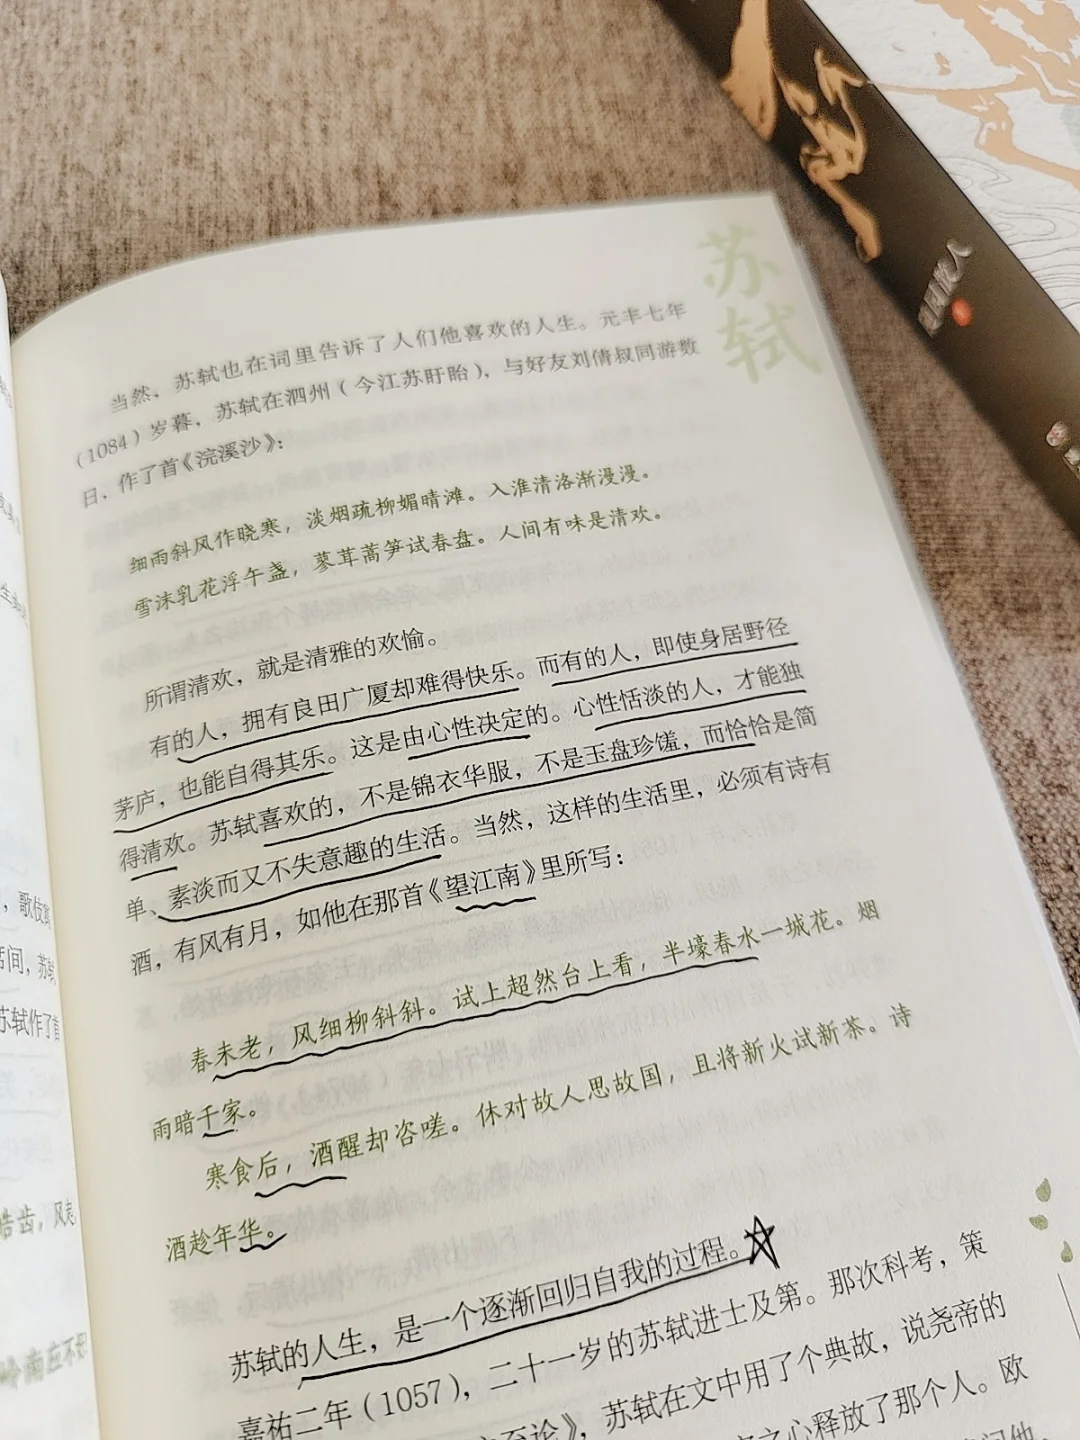 苏轼
当然，苏轼也在词里告诉了人们他喜欢的人生。元丰七年
（1084）岁暮，苏轼在泗州（今江苏盱眙），与好友刘倩叔同游数
日，作了首《浣溪沙》：
细雨斜风作晓寒，淡烟疏柳媚晴滩。入淮清洛渐漫漫。
雪沫乳花浮午盏，蓼茸蒿笋试春盘。人间有味是清欢。
所谓清欢，就是清雅的欢愉。
有的人，拥有良田广厦却难得快乐。而有的人，即使身居野径
茅庐，也能自得其乐。这是由心性决定的。心性恬淡的人，才能独
得清欢。苏轼喜欢的，不是锦衣华服，不是玉盘珍馐，而恰恰是简
单、素淡而又不失意趣的生活。当然，这样的生活里，必须有诗有
酒，有风有月，如他在那首《望江南》里所写：
春未老，风细柳斜斜。试上超然台上看，半壕春水一城花。烟
雨暗千家。
寒食后，酒醒却咨嗟。休对故人思故国，且将新火试新茶。诗
酒趁年华。
苏轼的人生，是一个逐渐回归自我的过程。
嘉祐二年（1057），二十一岁的苏轼进士及第。那次科考，策
至论》，苏轼在文中用了个典故，说尧帝的
之心释放了那个人。欧
，歌伎
席间，苏
苏轼作了首
皓齿，风
岭南应不